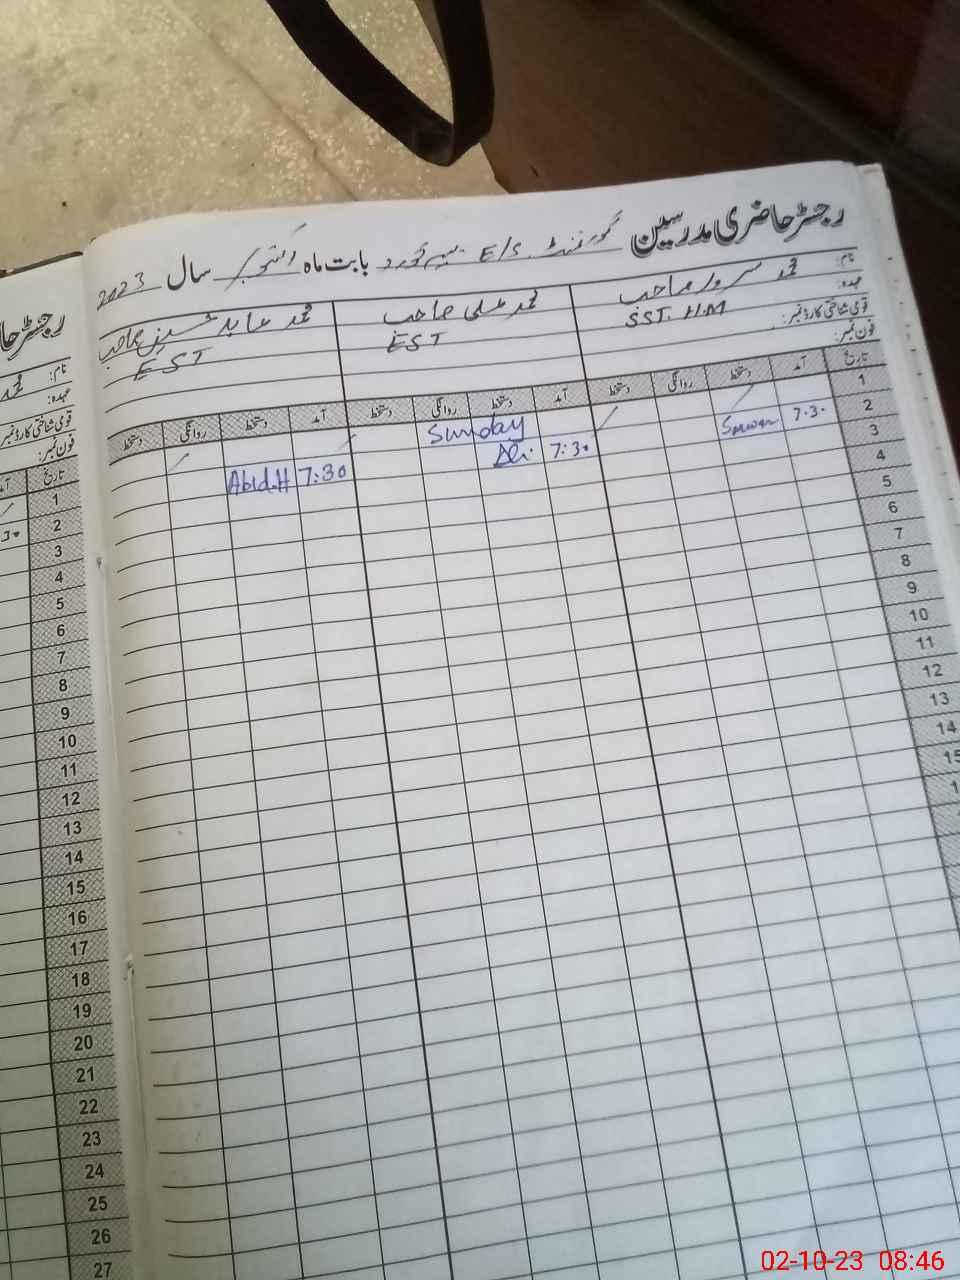 رجسٹر حاضری مدرسین گورنمنٹ E/S بابت ماہ اکتوبر سال 2023
نام: محمد سرور صاحب محمد علی صاحب محمد عابد حسین صاحب
عہدہ: SST. H.M EST EST
قومی شناختی کارڈ نمبر:
فون نمبر:
تاریخ آمد دستخط روانگی دستخط آمد دستخط روانگی دستخط آمد دستخط روانگی دستخط
1 Sunday
2 7.30 Sarwar 7:30 Ali 7:30 Abid.H
3
4
5
6
7
8
9
10
11
12
13
14
15
رجسٹر
نام: محمد
عہدہ:
قومی شناختی کارڈ نمبر
فون نمبر:
تاریخ آمد
1
2
3
4
5
6
7
8
9
10
11
12
13
14
15
16
17
18
19
20
21
22
23
24
25
26
27
02-10-23 08:46